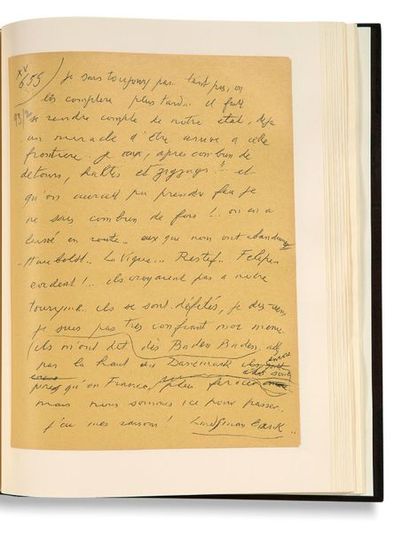 XV
655) je suis toujours pas tant pis, on
les comptera plus tard.. il faut
se rendre compte de notre état, déjà
un miracle d'être arrivé à cette
frontière je crois, après combien de
détours, haltes et zigzags !.. et
qu'on aurait pu prendre feu je
ne sais combien de fois !.. on en a
laissé en route.. eux que nous ont abandonnés
Harboldt.. La Vigue... Restif.. Felipe
évident !.. ils croyaient pas à notre
ils se sont défilés, je dis
je suis pas très confiant moi même
(ils m'ont dit dès Baden Baden,
par là haut au Danemark
pires qu'en France, plus féroces
mais nous sommes ici pour passer..
j'ai mes raisons !